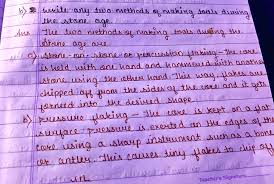 b) write any two methods of making tools during
the stone age.
Ans The two methods of making tools during the
stone age are
a) stone-on-stone or percussion flaking - The core
is held with one hand and hammered with another
stone using the other hand. This way, flakes are
chipped off from the sides of the core and it gets
formed into the desired shape.
b) pressure flaking - The core is kept on a flat
surface. pressure is exerted on the edges of the
core using a sharp instrument such as a bone
or antler. This causes tiny flakes to chip off
Teacher's Signature